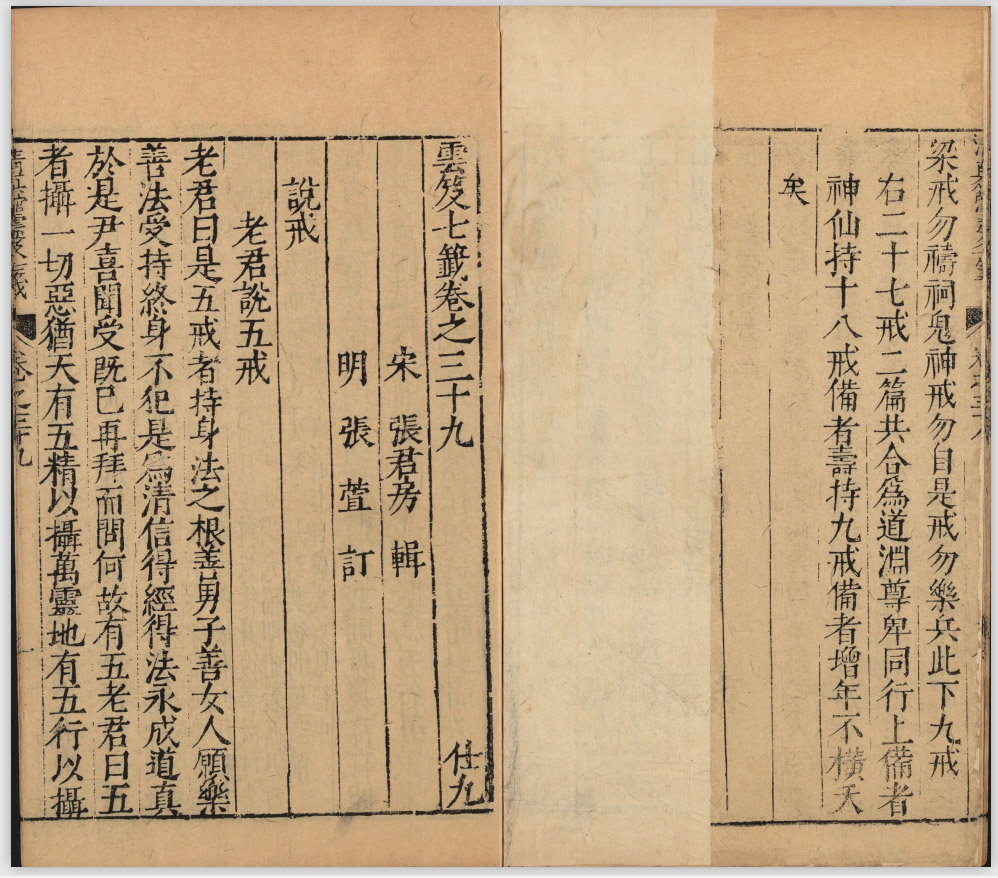 梁戒勿禱祠鬼神戒勿自是戒勿樂兵此下九戒
右二十七戒二篇共合爲道淵尊卑同行上備者
神仙持十八戒備者壽持九戒備者增年不橫夭
矣
雲笈七籤卷之三十九
仕九
宋 張君房 輯
明 張萱 訂
說戒
老君說五戒
老君曰是五戒者持身法之根善男子善女人願樂
善法受持終身不犯是爲清信得經得法永成道真
於是尹喜聞受旣已再拜而問何故有五老君曰五
者攝一切惡猶天有五精以攝萬靈地有五行以攝
卷之三十九